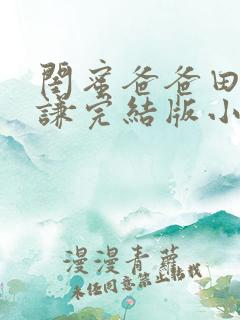 閨蜜爸爸田
謙完結版小
漫漫青蘿
未經同意禁止轉載